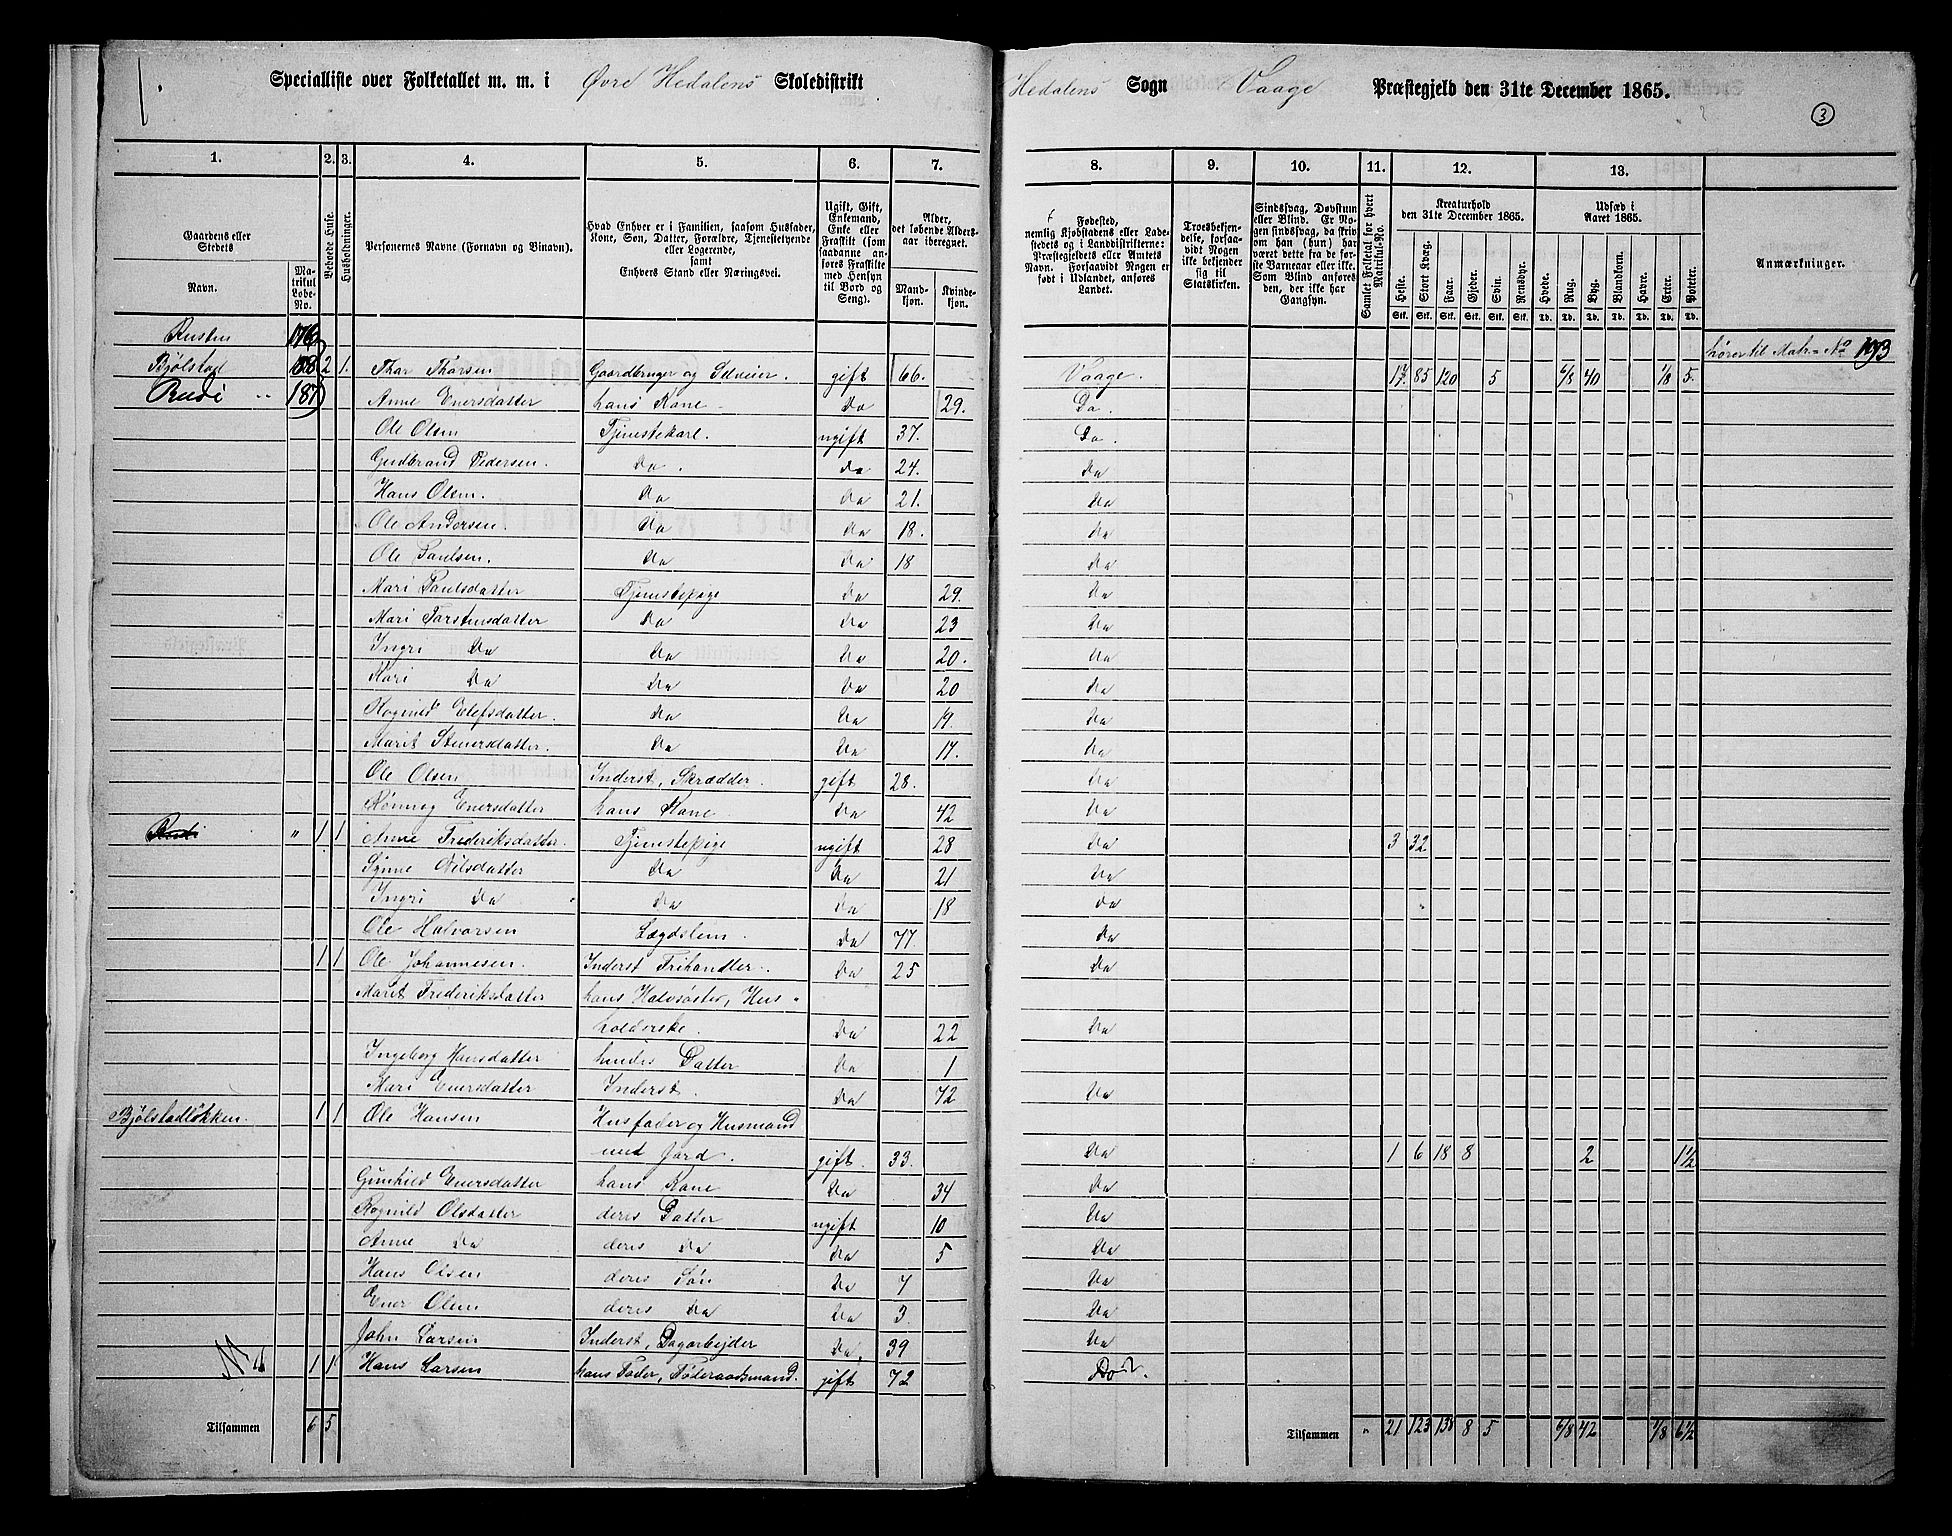 1.
Specialliste over Folketallet m. m. i Øvre Hedalens Skoledistrikt Hedalens Sogn Vaage Præstegjeld den 31te December 1865.
3
1. 2. 3. 4. 5. 6. 7. 8. 9. 10. 11. 12. 13.
Gaardens eller Stedets
Navn.
Matrikul Løbe-No.
Beboede Huse.
Husholdninger.
Personernes Navne (Fornavn og Binavn).
Hvad Enhver er i Familien, saasom Husfader, Kone, Søn, Datter, Forældre, Tjenstetyende eller Logerende, samt Enhvers Stand eller Næringsvei.
Ugift, Gift, Enkemand, Enke eller Fraskilt (som saadanne anføres Fraskilte med Hensyn til Bord og Seng).
Alder, det løbende Aldersaar iberegnet.
Mandkjøn.
Kvindekjøn.
Fødested, nemlig Kjøbstadens eller Ladestedets og i Landdistrikterne: Præstegjeldets eller Amtets Navn. Forsaavidt Nogen er født i Udlandet, anføres Landet.
Troesbekjendelse, forsaavidt Nogen ikke bekjender sig til Statskirken.
Sindssvag, Døvstum eller Blind. Er Nogen sindssvag, da skriv om han (hun) har været dette fra de første Barneaar eller ikke. Som Blind anføres den, der ikke har Gangsyn.
Samlet Folketal for hvert Matrikul-No.
Kreaturhold den 31te December 1865.
Heste. Stort Kvæg. Faar. Gjeder. Svin. Rensdyr.
Stk. Stk. Stk. Stk. Stk. Stk.
Udsæd i Aaret 1865.
Hvede. Rug. Byg. Blandkorn. Havre. Erter. Poteter.
Td. Td. Td. Td. Td. Td. Td.
Anmærkninger.
Rusten 176 hører til Matr-No 193
Bjølstad 2 1. Thor Thorsen Gaardbruger og Selveier. gift 66. Vaage. 17 85 120 5 6/8 40 1/8 5.
Rudi „ 187 Anne Enersdatter hans Kone Do 29. Do.
Ole Olsen Tjenestekarl. ugift 37. Do.
Gudbrand Pedersen. Do. Do 24. Do
Hans Olsen. Do Do 21. Do
Ole Andersen. Do Do 18. Do
Ole Paulsen. Do Do 18 Do
Mari Paulsdatter Tjenestepige Do 29. Do
Mari Torstensdatter Do Do 23 Do
Ingri Do Do Do 20. Do
Kari Do Do Do 20 Do
Rognild Elefsdatter. Do Do 19 Do
Marit Stenersdatter. Do Do 17. Do
Ole Olsen Inderst, Skrædder. gift 28. Do
Rønnog Enersdatter hans Kone Do 42 Do
Rudi „ 1 1 Anne Frederiksdatter. Tjenestepige ugift 28 Do 3 32
Synne Nilsdatter Do Do 21 Do
Ingri Do Do Do 18 Do
Ole Halvorsen Lægdslem. Do 77. Do
1 1 Ole Johannesen. Inderst Frihandler. Do 25 Do
Marit Frederiksdatter hans Halvsøster, Hus-
holderske. Do 22 Do
Ingeborg Hansdatter hendes Datter Do 1
Mari Enersdatter Inderst. Do 72 Do
Bjølstadløkken. 1 1 Ole Hansen Husfader og Husmand
med Jord. gift. 33. Do 1 6 18 8 2 1½
Gunhild Enersdatter hans Kone Do 34 Do
Rognild Olsdatter deres Datter ugift 10 Do
Anne Do deres Do Do 5 Do
Hans Olsen deres Søn Do 7 Do
Ener Olsen deres Do Do 3. Do
John Larsen Inderst, Dagarbejder Do. 39 Do
1 1 Hans Larsen hans Fader, Føderaadsmand. gift 72 Do.
Tilsammen 6 5 Tilsammen „ 21 123 138 8 5 6/8 42 1/8 6½